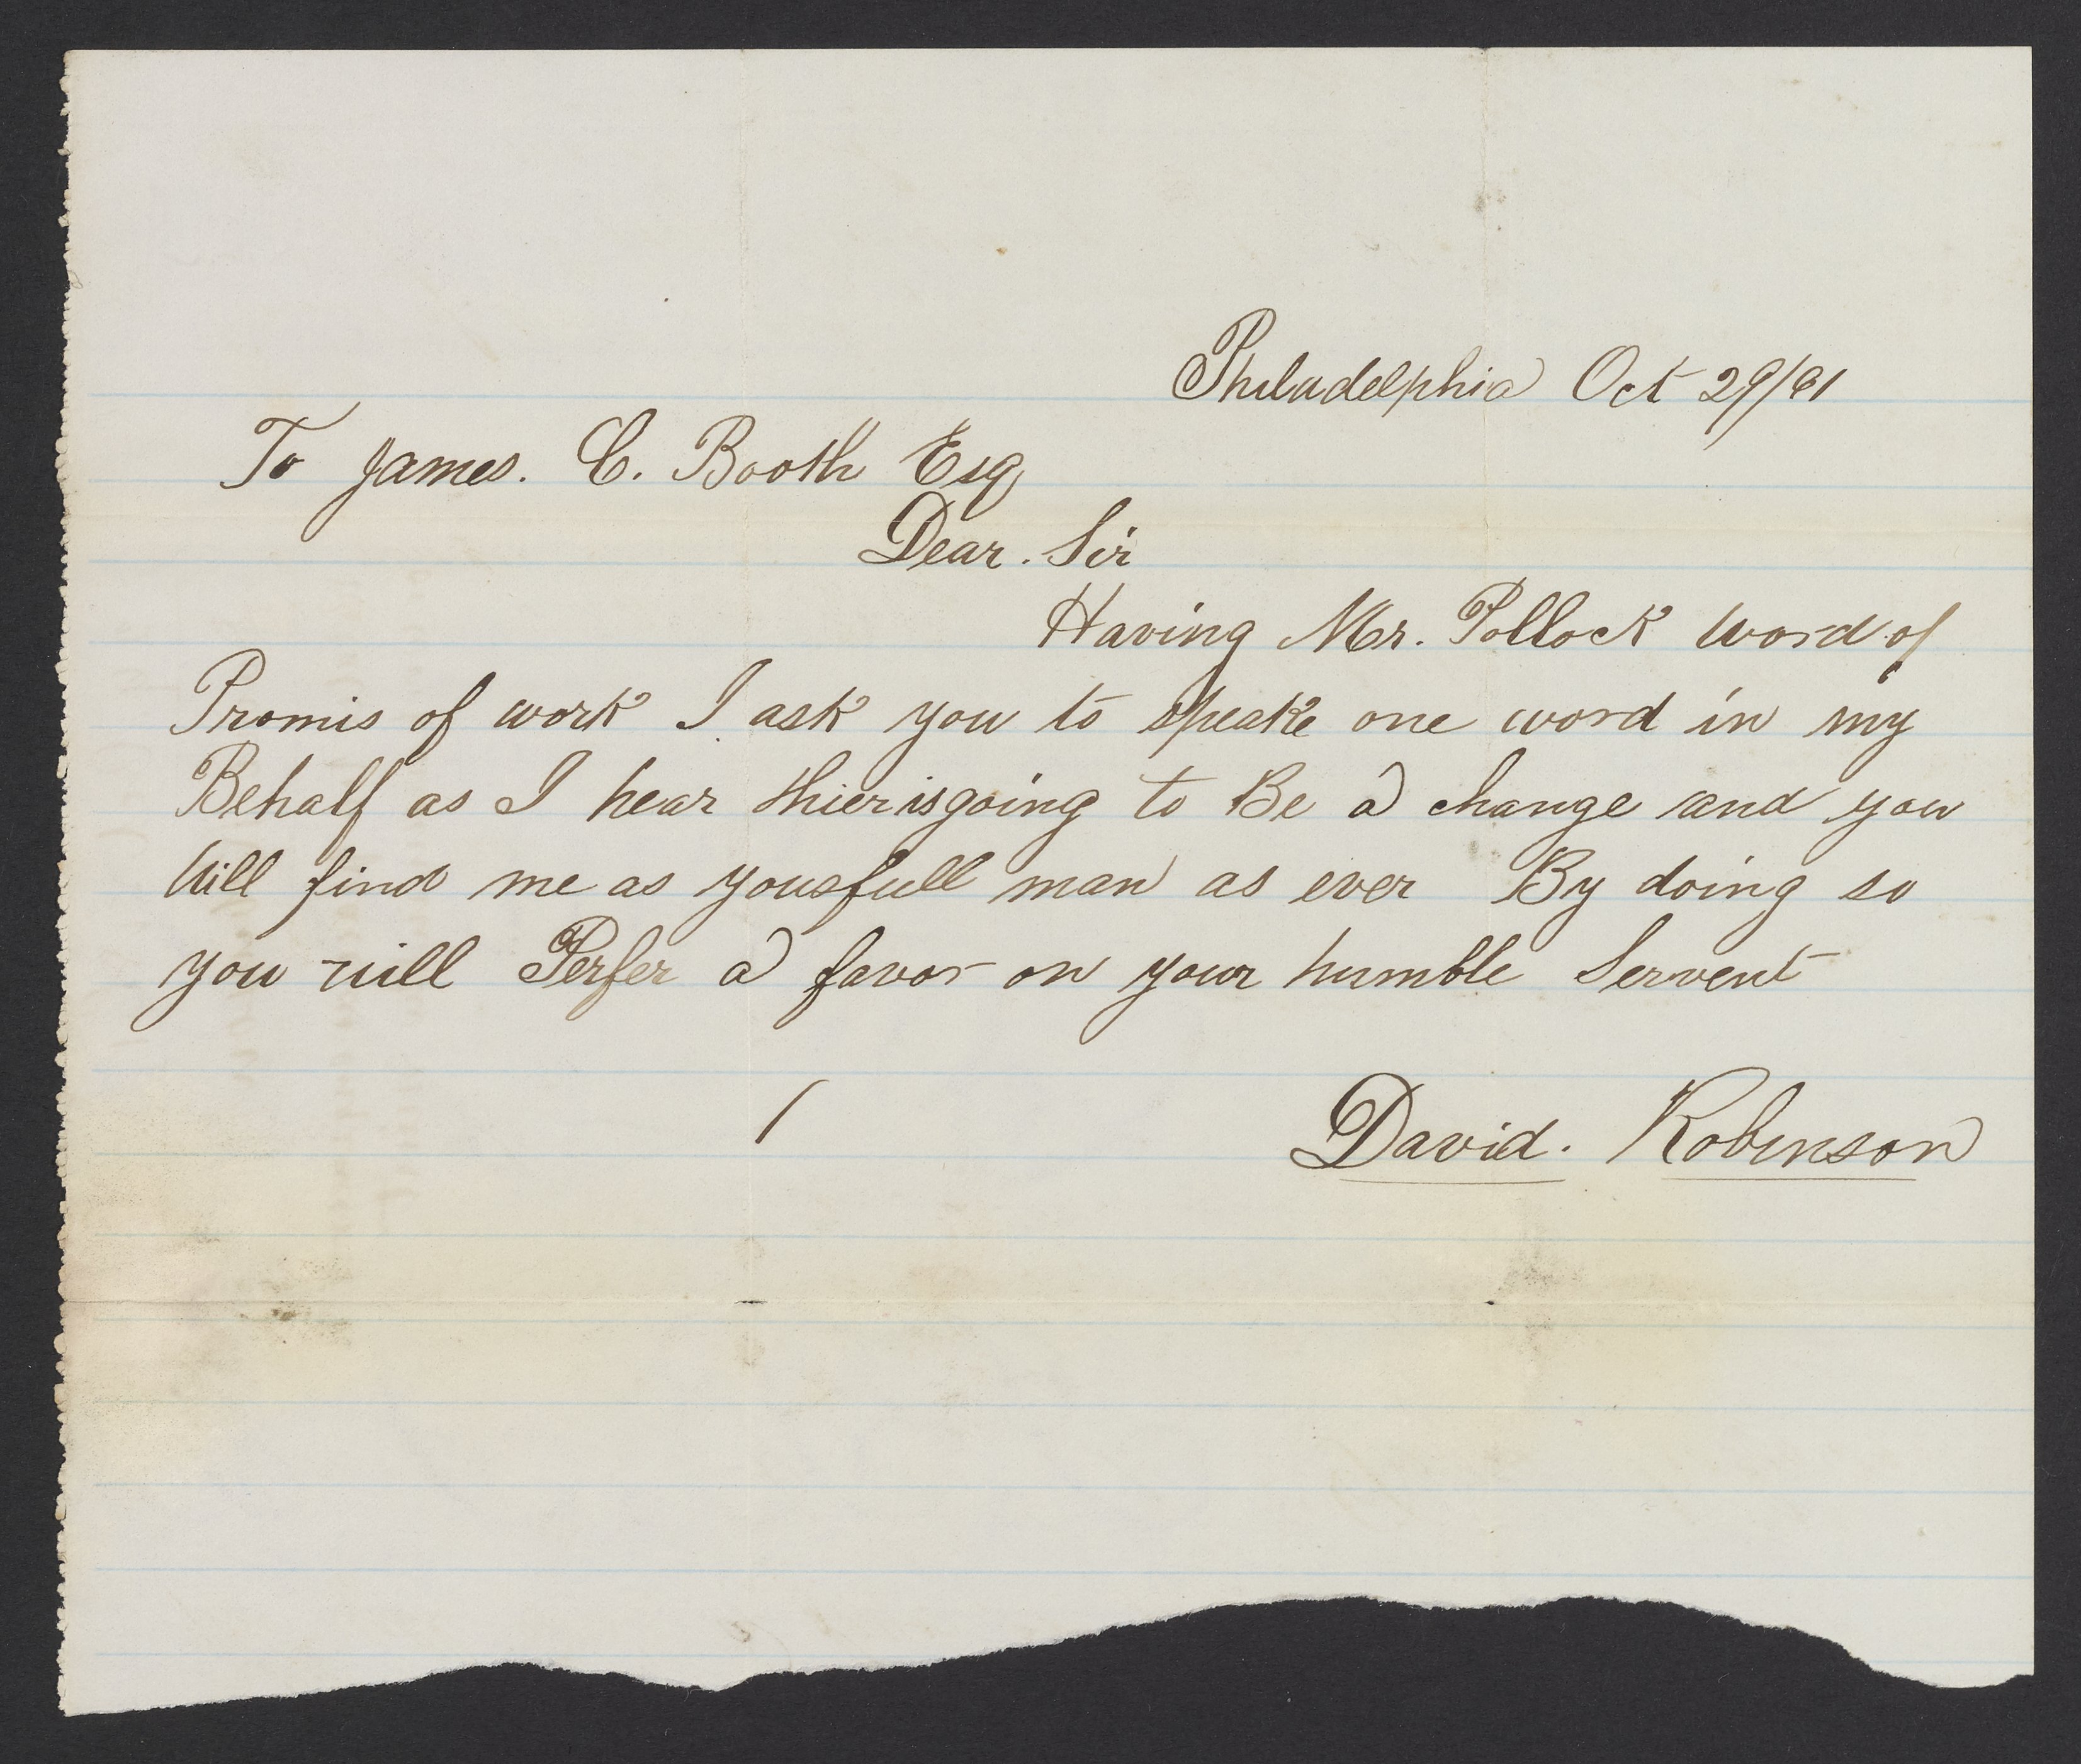 Philadelphia Oct 29/61
To James. C. Booth Esq
Dear. Sir
Having Mr. Pollock word of
Promis of work I ask you to speake one word in my
Behalf as I hear thier is going to Be a change and you
Will find me as yousfull man as ever By doing so
you will Perfer a favor on your humble Servent
David. Robinson